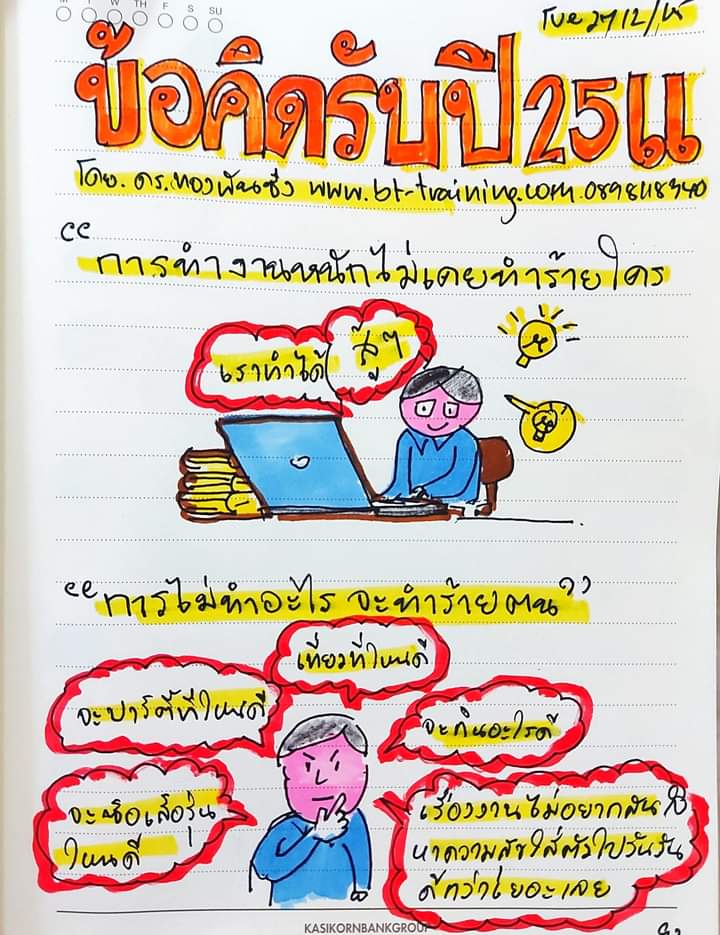 M T W TH F S SU
Tue 27/12/
ข้อคิดรับปี 25
โดย.ดร.ทองพันชั่ง www.bt-training.com
“การทำงานหนักไม่เคยทำร้ายใคร
เราทำได้
สู้ๆ
“การไม่ทำอะไร จะทำร้ายตน”
เที่ยวที่ไหนดี
จะปาร์ตี้ที่ไหนดี
จะกินอะไรดี
จะซื้อเสื้อรุ่น
ไหนดี
เรื่องงานไม่อยากสนใจ
หาความสุขใส่ตัวไปวันวัน
ดีกว่าเยอะเลย
KASIKORNBANKGROUP